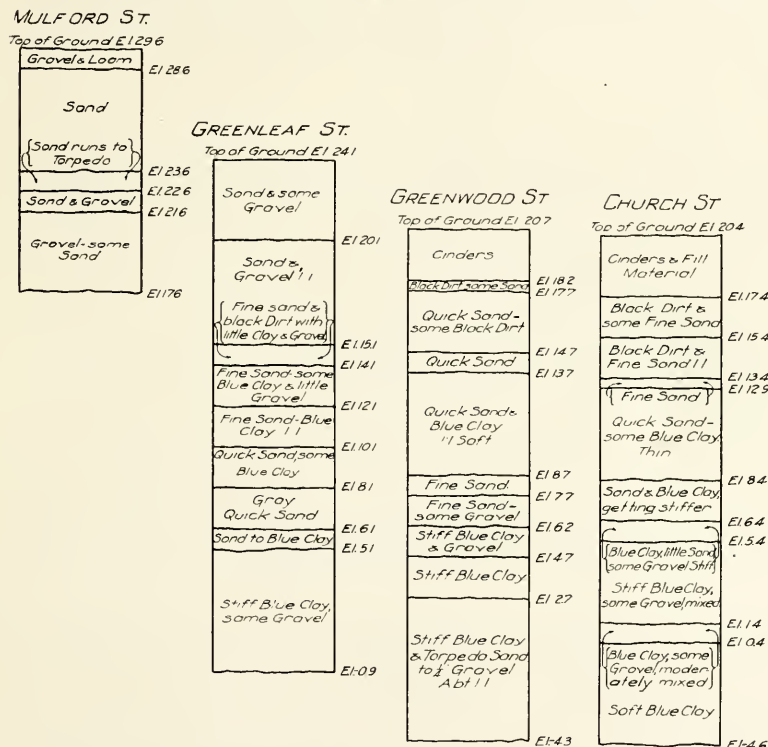 MULFORD ST.
Top of Ground El 29.6
Gravel & Loam
El 28.6
Sand
Sand runs to
Torpedo
El 23.6
El 22.6
Sand & Gravel
El 21.6
Gravel-some
Sand
El 17.6
GREENLEAF ST.
Top of Ground El 24.1
Sand & some
Gravel
El 20.1
Sand &
Gravel 1:1
Fine sand &
black Dirt with
little Clay & Gravel
El. 15.1
El 14.1
Fine Sand-some
Blue Clay & little
Gravel
El 12.1
Fine Sand-Blue
Clay 1:1
El. 10.1
Quick Sand, some
Blue Clay
El 8.1
Gray
Quick Sand
El. 6.1
Sand to Blue Clay
El. 5.1
Stiff Blue Clay,
some Gravel
El-0.9
GREENWOOD ST
Top of Ground El 20.7
Cinders
El 18.2
Black Dirt some Sand
El 17.7
Quick Sand-
some Black Dirt
El 14.7
Quick Sand
El 13.7
Quick Sand &
Blue Clay
1:1 Soft
El 8.7
Fine Sand
El 7.7
Fine Sand-
some Gravel
El 6.2
Stiff Blue Clay
& Gravel
El 4.7
Stiff Blue Clay
El 2.7
Stiff Blue Clay
& Torpedo Sand
to Gravel
Abt 1:1
El-4.3
CHURCH ST
Top of Ground El 20.4
Cinders & Fill
Material
El. 17.4
Black Dirt &
some Fine Sand
El 15.4
Black Dirt &
Fine Sand 1:1
El 13.4
El 12.9
Fine Sand
Quick Sand-
some Blue Clay,
Thin
El 8.4
Sand & Blue Clay,
getting stiffer
El. 6.4
El. 5.4
Blue Clay, little Sand
some Gravel Stiff
Stiff Blue Clay,
some Gravel, mixed
El. 1.4
El 0.4
Blue Clay, some
Gravel, moder-
ately mixed
Soft Blue Clay
El-4.6